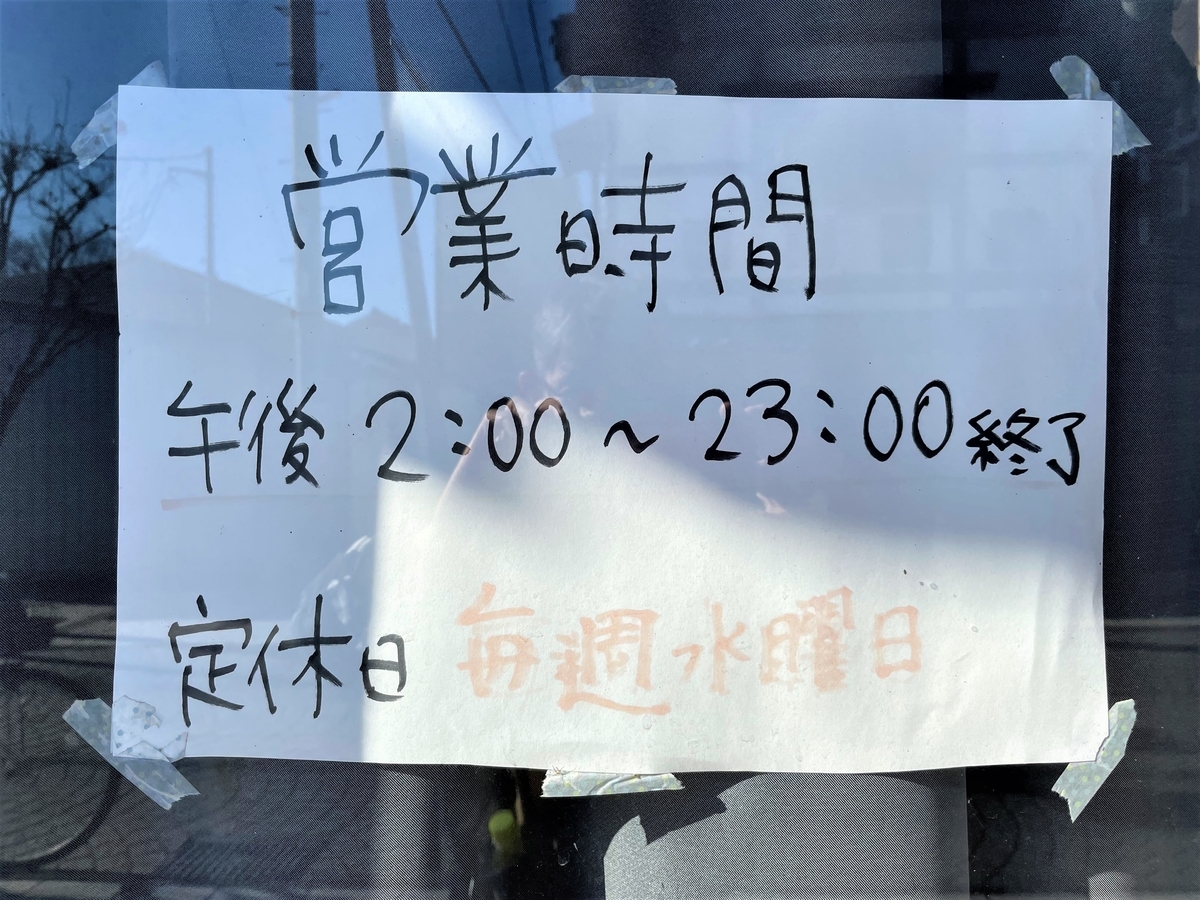 営業時間
午後 2:00～23:00終了
定休日 毎週水曜日